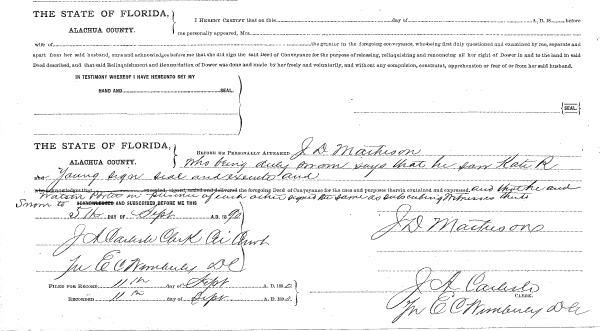 THE STATE OF FLORIDA,
ALACHUA COUNTY.
I HEREBY CERTIFY that on this day of A. D. 18 before
me personally appeared, Mrs.
wife of the grantor in the foregoing conveyance, who being first duly questioned and examined by me, separate and
apart from her said husband, says and acknowledges before me that she did sign the said Deed of Conveyance for the purpose of releasing, relinquishing and renouncing all her right of Dower in and to the land in said
Deed described, and that said Relinquishment and Renunciation of Dower was done and made by her freely and voluntarily, and without any compulsion, constraint, apprehension or fear of or from her said husband.
IN TESTIMONY WHEREOF I HAVE HEREUNTO SET MY
HAND AND SEAL.
SEAL.
THE STATE OF FLORIDA,
ALACHUA COUNTY.
BEFORE ME PERSONALLY APPEARED J. D. Matheson
who being duly sworn says that he saw Kate R
Young sign seal and execute and
who acknowledges that executed, signed, sealed and delivered the foregoing Deed of Conveyance for the uses and purpose therein contained and expressed, and that he and
Watson Porter in presence of each other signed the same as subscribing witnesses thereto
Sworn to ACKNOWLEDGED AND SUBSCRIBED BEFORE ME THIS
5th DAY OF Sept A. D. 1892
J. D. Matheson
J A Carlisle Clerk Cir Court
Per E C Wimberly DC
FILED FOR RECORD 11th day of Sept A. D. 189
RECORDED 11th day of Sept A. D. 189
J A Carlisle
CLERK.
Per E C Wimberly DC